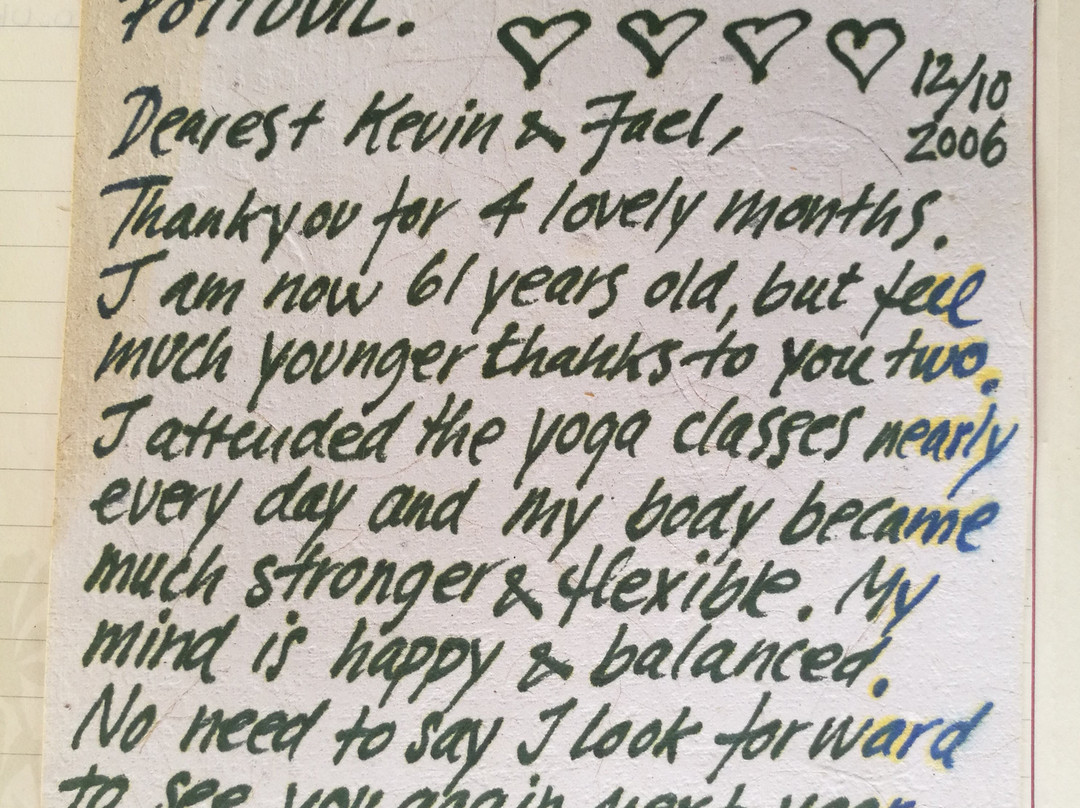 Dearest Kevin & Fael,
12/10
2006
Thankyou for 4 lovely months.
I am now 61 years old, but feel
much younger thanks to you two.
I attended the yoga classes nearly
every day and my body became
much stronger & flexible. My
mind is happy & balanced.
No need to say I look forward
to see you again next year